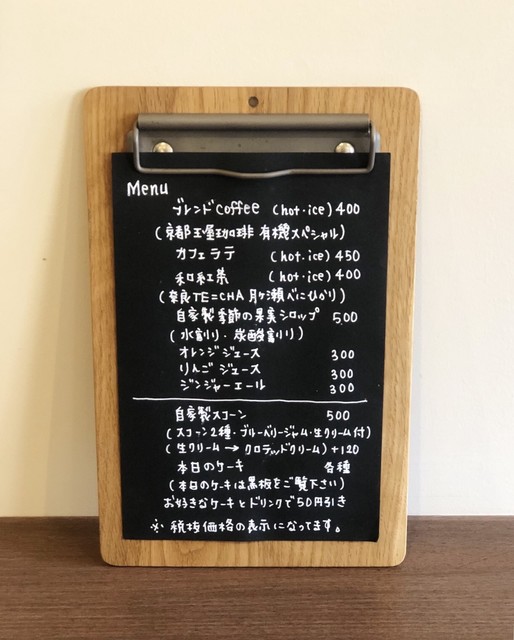 Menu
ブレンドcoffee (hot・ice) 400
(京都玉屋珈琲 有機スペシャル)
カフェラテ (hot・ice) 450
和紅茶 (hot・ice) 400
(奈良TE=CHA 月ヶ瀬べにひかり)
自家製季節の果実シロップ 500
(水割り・炭酸割り)
オレンジジュース 300
りんごジュース 300
ジンジャーエール 300
自家製スコーン 500
(スコーン2種・ブルーベリージャム・生クリーム付)
(生クリーム→クロテッドクリーム)+120
本日のケーキ 各種
(本日のケーキは黒板をご覧下さい)
お好きなケーキとドリンクで50円引き
※税抜価格の表示になってます。